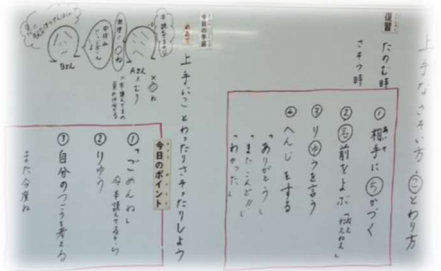 上手なさそい方・ことわり方
復習
たのむ時
さそう時
①相手にちかづく
②名前をよぶ
③りゆうを言う
④へんじをする
「ありがとう」
「またこんど!!」
「わかった」
今日の学習
めあて
上手にことわったりさそったりしよう
Aさん
Bさん
今日のポイント
①「ごめんね」
②りゆう
③自分のつごうを考える
また今度ね